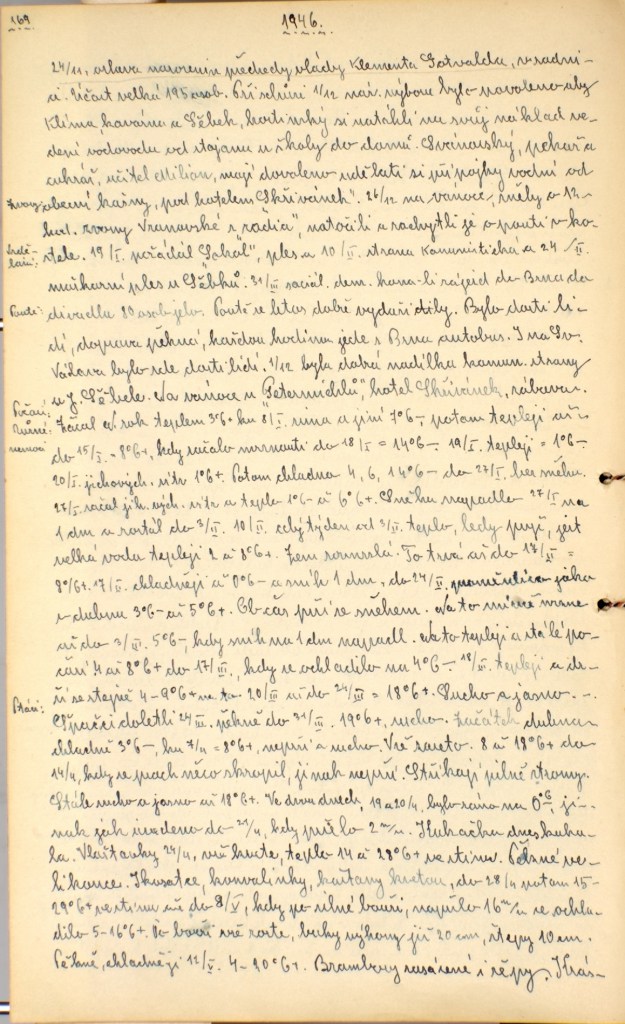 169.
1946.
24/11, oslava narozenin předsedy vlády Klementa Gotvalda, v radni-
ci. Účast velká 195 osob. Při schůzi 1/12 nár. výboru bylo povoleno aby
Klíma, kavárna a Sčbek, hostinský si natáhli na svůj náklad ve-
dení vodovodu od stojanu u školy do domů. Švánovský, pekař a
cukrář, učitel Milián, mají dovoleno udělati si přípojky vodní od
Zvony obecní kašny, pod hotelem "Skřivánek". 26/12 na vánoce, měly o 12-
hod. zvony Vranovské z "radia", natočili a zachytli je o pouti v ko-
Vzdě-
lání:
stele. 19/I. pořádal "Sokol", ples a 10/II. strana Komunistická a 24/II.
maškarní ples u Sčbků. 31/III sociál. dem. zájezd do Brna do
Poutě: divadla 80 osob jelo. Poutě se letos dobře vydařily. Bylo dosti li-
dí, doprava pěkná, každou hodinu jede z Brna autobus. I na Sv.
Václava bylo zde dosti lidí. 1/12 byla dobrá nadílka komun. strany
u J. Sčbele. Na vánoce u "Petermichlů", hotel Skřivánek, zábava.
Počasí:
Začal N. rok teplem 3°6+ ku 8/I. zima a jíní 7°6-, potom tepleji až
do 15/I. = 8°6+, kdy začalo mrznouti do 18/I = 14°6-. 19/I. tepleji = 1°6-
20/I. jihových. vítr 1°6+. Potom chladno 4, 6, 14°6- do 27/I. bez sněhu.
27/I. začal jih. vých. vítr a teplo 1°6- až 6°6+. Sněhu napadlo 27/I na
1 dm a roztál do 3/II. 10/II. celý týden od 3/II. teplo, ledy pryč, jest
velká voda tepleji 2 až 8°6+. Zem rozmrzlá. To trvá až do 17/II =
8°6+. 17/II. chladněji až 0°6- a sníh 1 dm, do 24/II. proměnlivo jako
v dubnu 3°6- až 5°6+. Občas prší se sněhem. Na to mírně mrzne
až do 3/III. 5°6-, kdy sníh na 1 dm napadl. Na to tepleji a stálé po-
časí 4 až 8°6+ do 17/III., kdy se ochladilo na 4°6-. 18/III. tepleji a dr-
ží se stejně 4-9°6+ 20/III až do 24/III = 18°6+. Sucho a jasno. -.
Ptáci: Špačci doletli 24/III. pěkně do 31/III. 19°6+, sucho. Začátek dubna
chladně 3°6-, ku 7/4 = 8°6+, neprší a sucho. Vše zaseto. 8 až 18°6+ do
14/4, kdy se prach něco skropil, jinak neprší. Stříkají pilně stromy.
Stále sucho a jasno až 18°6+. Ve dvou dnech, 19 a 20/4. bylo ráno na 0°6, ji-
nak jak uvedeno do 21/4, kdy pršlo 2 m/m. Kukačka dnes kuka-
la. Vlaštovky 24/4, vše kvete, teplo 14 až 28°6+ ve stínu. Pěkné ve-
likonoce. Kosatce, konvalinky, kaštany kvetou, do 28/4 potom 15-
29°6+ ve stínu až do 8/V, kdy po silné bouři, napršlo 16 m/m se ochla-
dilo 5-16°6+. Po bouři vše roste, buky výhony již 20 cm, štepy 10 cm.
Pěkně, chladněji 12/V. 4-20°6+. Brambory zasázené i řepy. Krás-